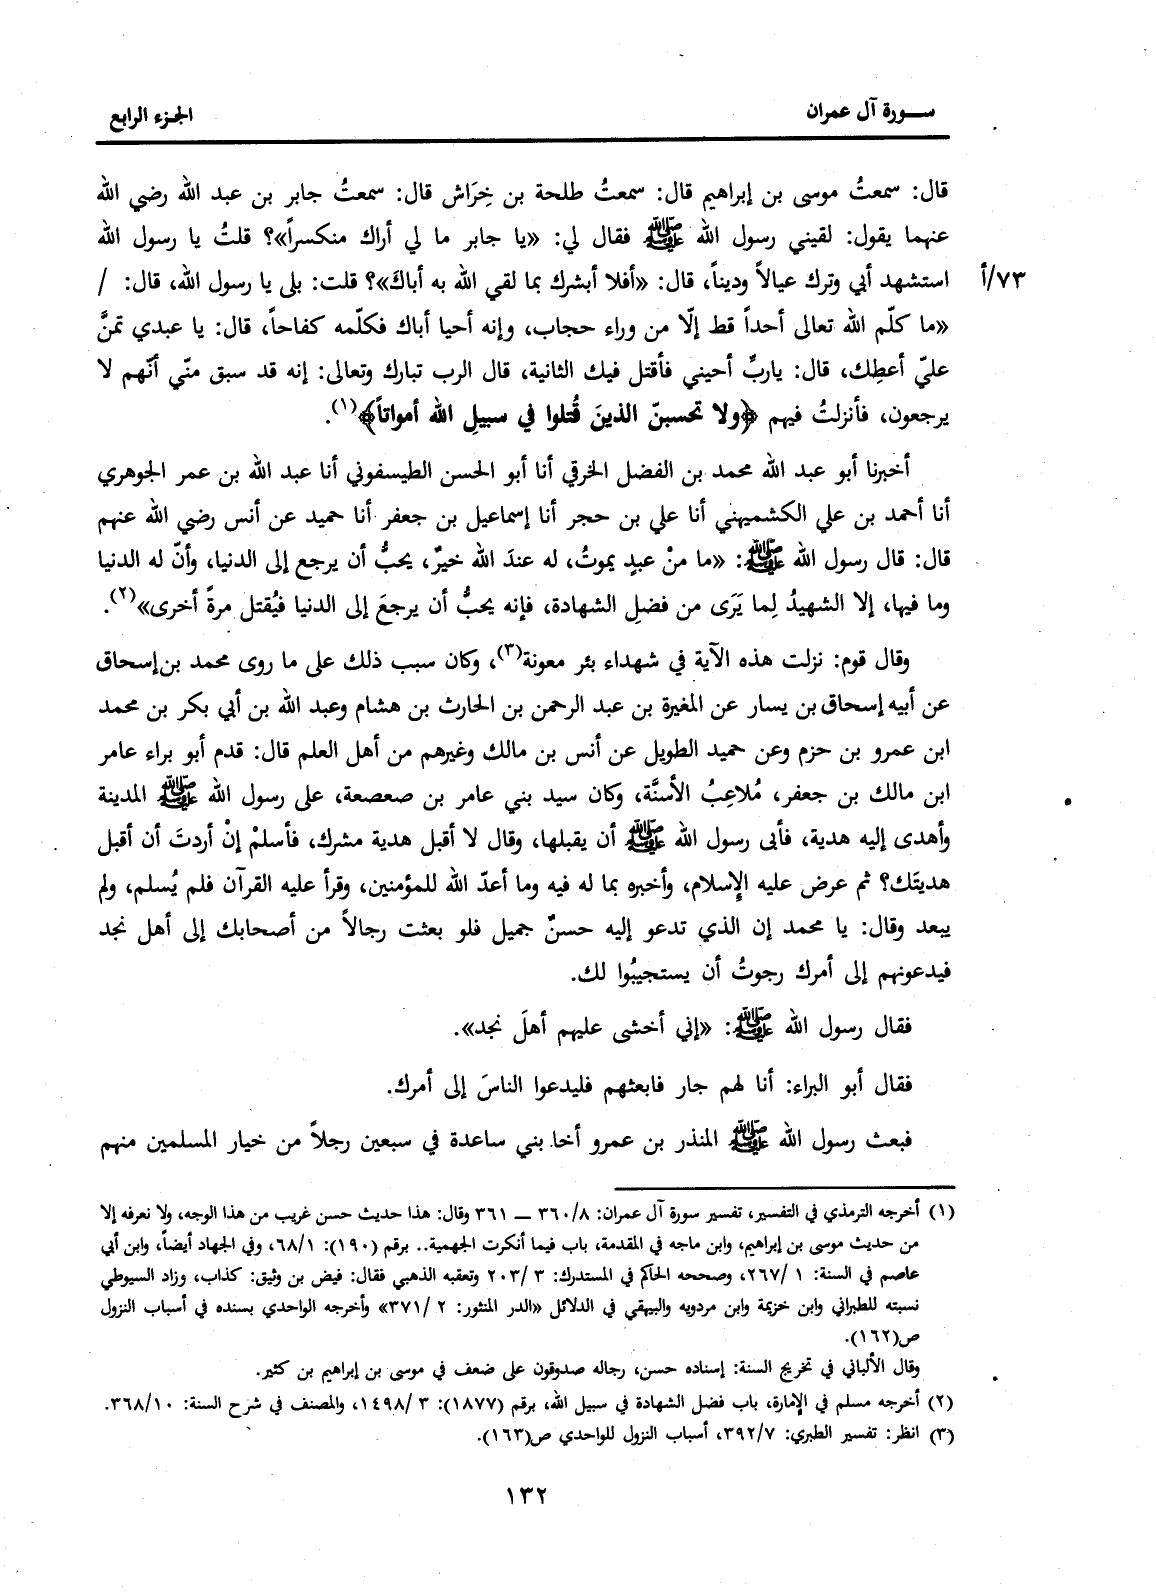 سورة آل عمران
الجزء الرابع
قال: سمعتُ موسى بن إبراهيم قال: سمعتُ طلحة بن خِرَاش قال: سمعتُ جابر بن عبد الله رضي الله
عنهما يقول: لقيني رسول الله ﷺ فقال لي: «يا جابر ما لي أراك منكسراً»؟ قلتُ يا رسول الله
استشهد أبي وترك عيالاً وديناً، قال: «أفلا أبشرك بما لقي الله به أباك»؟ قلت: بلى يا رسول الله، قال: /
٧٣/أ
«ما كلّم الله تعالى أحداً قط إلّا من وراء حجاب، وإنه أحيا أباك فكلّمه كفاحاً، قال: يا عبدي تمنَّ
عليّ أعطِك، قال: ياربِّ أحيني فأقتل فيك الثانية، قال الرب تبارك وتعالى: إنه قد سبق منّي أنّهم لا
يرجعون، فأنزلتُ فيهم ﴿ولا تحسبنّ الذينَ قُتلوا في سبيلِ الله أمواتاً﴾(١).
أخبرنا أبو عبد الله محمد بن الفضل الخرقي أنا أبو الحسن الطيسفوني أنا عبد الله بن عمر الجوهري
أنا أحمد بن علي الكشميهني أنا علي بن حجر أنا إسماعيل بن جعفر أنا حميد عن أنس رضي الله عنهم
قال: قال رسول الله ﷺ: «ما منْ عبدٍ يموتُ، له عندَ الله خيرٌ، يحبُّ أن يرجع إلى الدنيا، وأنّ له الدنيا
وما فيها، إلا الشهيدُ لِما يَرَى من فضلِ الشهادة، فإنه يحبُّ أن يرجعَ إلى الدنيا فيُقتل مرةً أخرى»(٢).
وقال قوم: نزلت هذه الآية في شهداء بئر معونة(٣)، وكان سبب ذلك على ما روى محمد بن إسحاق
عن أبيه إسحاق بن يسار عن المغيرة بن عبد الرحمن بن الحارث بن هشام وعبد الله بن أبي بكر بن محمد
ابن عمرو بن حزم وعن حميد الطويل عن أنس بن مالك وغيرهم من أهل العلم قال: قدم أبو براء عامر
ابن مالك بن جعفر، مُلاعِبُ الأسنَّة، وكان سيد بني عامر بن صعصعة، على رسول الله ﷺ المدينة
وأهدى إليه هدية، فأبى رسول الله ﷺ أن يقبلها، وقال لا أقبل هدية مشرك، فأسلمْ إنْ أردتَ أن أقبل
هديتَك؟ ثم عرض عليه الإسلام، وأخبره بما له فيه وما أعدّ الله للمؤمنين، وقرأ عليه القرآن فلم يُسلم، ولم
يبعد وقال: يا محمد إن الذي تدعو إليه حسنٌ جميل فلو بعثت رجالاً من أصحابك إلى أهل نجد
فيدعونهم إلى أمرك رجوتُ أن يستجيبُوا لك.
فقال رسول الله ﷺ: «إني أخشى عليهم أهلَ نجد».
فقال أبو البراء: أنا لهم جار فابعثهم فليدعوا الناسَ إلى أمرك.
فبعث رسول الله ﷺ المنذر بن عمرو أخا بني ساعدة في سبعين رجلاً من خيار المسلمين منهم
(١) أخرجه الترمذي في التفسير، تفسير سورة آل عمران: ٨/ ٣٦٠ ــ ٣٦١ وقال: هذا حديث حسن غريب من هذا الوجه، ولا نعرفه إلا
من حديث موسى بن إبراهيم، وابن ماجه في المقدمة، باب فيما أنكرت الجهمية.. برقم (١٩٠): ١/ ٦٨، وفي الجهاد أيضاً، وابن أبي
عاصم في السنة: ١/ ٢٦٧، وصححه الحاكم في المستدرك: ٣/ ٢٠٣ وتعقبه الذهبي فقال: فيض بن وثيق: كذاب، وزاد السيوطي
نسبته للطبراني وابن خزيمة وابن مردويه والبيهقي في الدلائل «الدر المنثور: ٢/ ٣٧١» وأخرجه الواحدي بسنده في أسباب النزول
ص(١٦٢).
وقال الألباني في تخريج السنة: إسناده حسن، رجاله صدوقون على ضعف في موسى بن إبراهيم بن كثير.
(٢) أخرجه مسلم في الإمارة، باب فضل الشهادة في سبيل الله، برقم (١٨٧٧): ٣/ ١٤٩٨، والمصنف في شرح السنة: ١٠/ ٣٦٨.
(٣) انظر: تفسير الطبري: ٧/ ٣٩٢، أسباب النزول للواحدي ص(١٦٣).
١٣٢